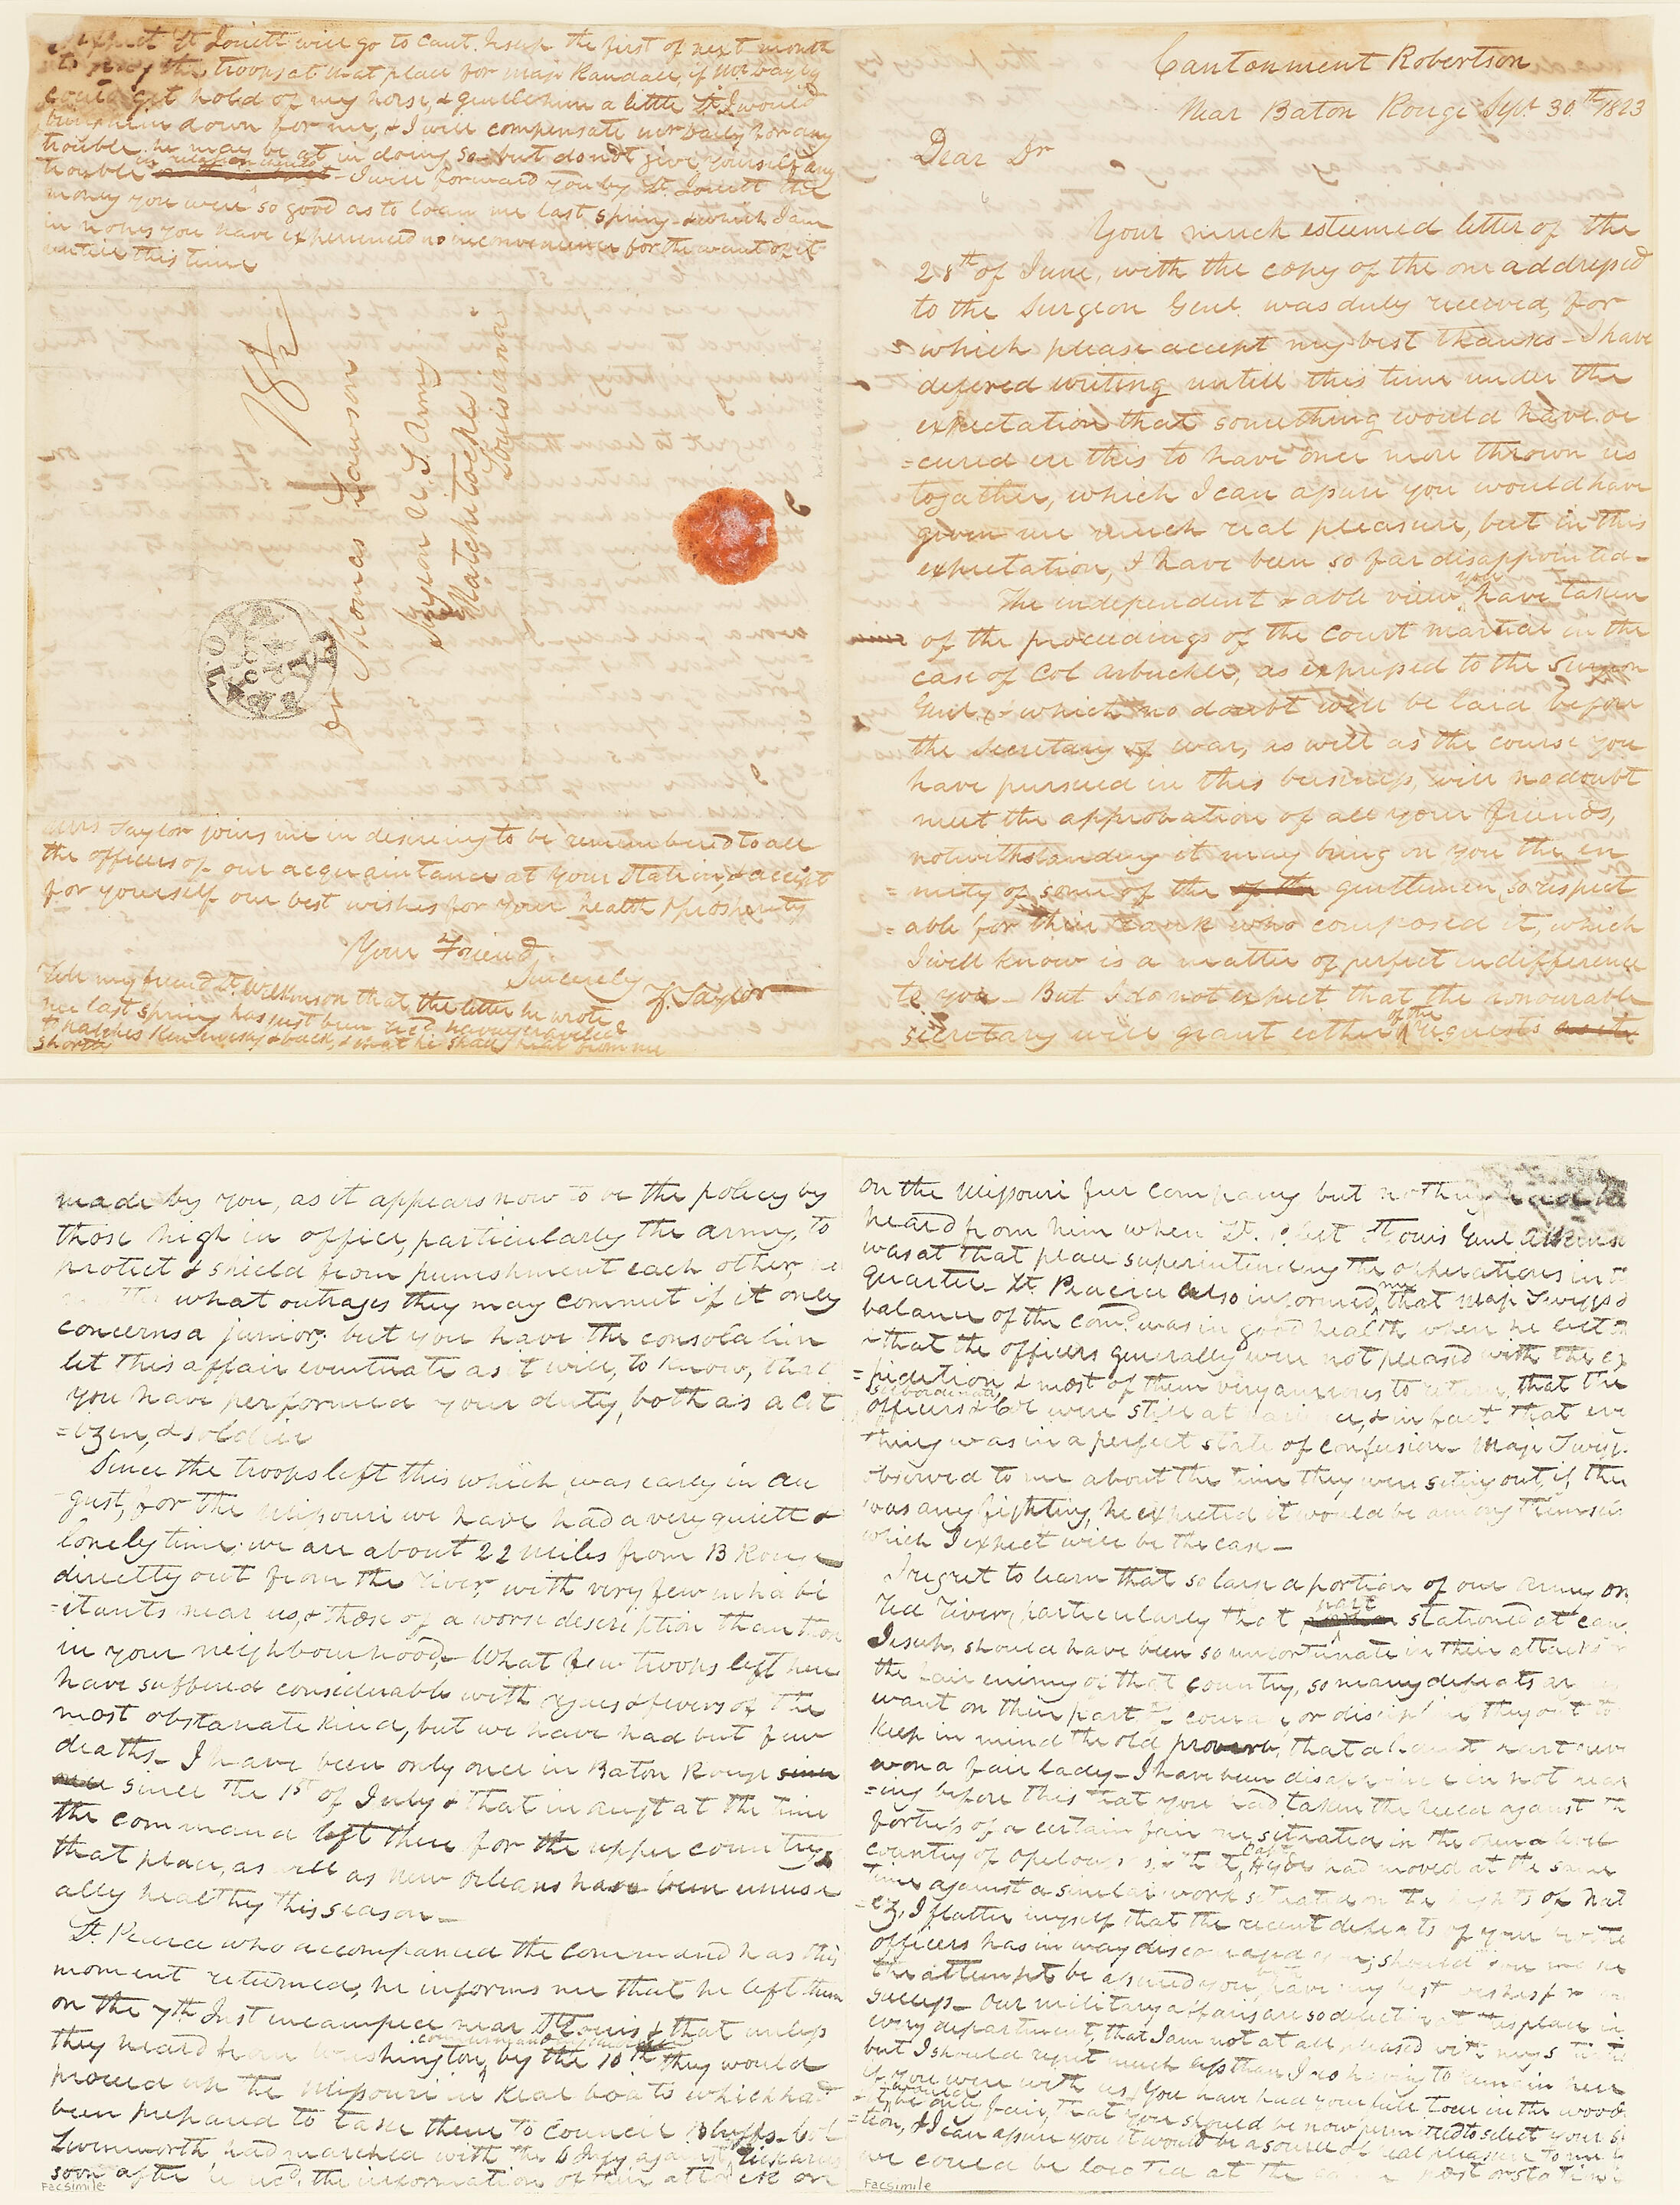 Cantonment Robertson
Near Baton Rouge Sept. 30th 1823
Dear Dr
Your much esteemed letter of the
28th of June, with the copy of the one addressed
to the Surgeon Genl. was duly received, for
which please accept my best thanks - I have
defered writing untill this time under the
expectation that something would have oc
=cured in this to have once more thrown us
together, which I can assure you would have
given me much real pleasure, but in this
expectation, I have been so far disappointed -
The independent & able view you have taken
of the proceedings of the Court Martial in the
case of Col Arbuckle, as expressed to the Surgeon
Genl. & which no doubt will be laid before
the Secretary of war, as well as the course you
have pursued in this business, will no doubt
meet the approbation of all your friends,
notwithstanding it may bring on you the en
=mity of some of the of the gentlemen, so respect
=able for their rank who composed it, which
I well know is a matter of perfect indifference
to you - But I do not expect that the honourable
secretary will grant either of the requests as it
made by you, as it appears now to be the policy by
those high in office, particularly the army, to
protect & shield from punishment each other,
what outrages they may commit if it only
concerns a junior; but you have the consolation
let this affair eventuate as it will, to know, that
you have performed your duty, both as a cit
=izen, & soldier
Since the troops left this which was early in Au
gust, for the Missouri we have had a very quiett &
lonely time; we are about 22 miles from B Rouge
directly out from the river with very few inhabi
=itants near us, & those of a worse description than those
in your neighbourhood, - What few troops left here
have suffered considerable with agues & fevers of the
most obstanate kind, but we have had but few
deaths - I have been only once in Baton Rouge since
once since the 1st of July & that in Augt at the time
the command left there for the upper country,
that place, as well as New Orleans have been unusu
ally healthy this season -
Lt. Pearce who accompanied the command has this
moment returned, he informs me that he left them
on the 7th Inst incamped near St Louis & that unless
they heard from Washington, by the 10th they would
proceed up the Missouri in Keal boats which had
been prepared to take them to Council Bluffs - Col
Levenworth had marched with the 6 Infy against
soon after he recd. the information of their attack on
Facsimile
on the Missouri fur company but nothing had been
heard from him when Lt. P. left St Louis Genl Atkinson
was at that place superintending the opperations in that
quarter - Lt Pearce also informed me that Maj Twiggs &
balance of the comd. was in good health when he left
& that the officers generally were not pleased with the ex
=pidition, & most of them very anxious to return, that the
subordinate
officers & Col were still at & in fact that eve
thing was in a perfect state of confusion - Maj Twiggs
observed to me about the time they were seting out, if there
was any fighting, he expected it would be among themselves
which I expect will be the case -
I regret to learn that so large a portion of our Army on
Red river, particularly that part stationed at Cant.
Jesup, should have been so unfortunate in their attacks
the fair enimy of that country, so many defeats
want on their part of courage, or discipline they out to
keep in mind the old proverb, that a faint hart never
won a fair lady - I have been disappointed in not hear
=ing before this that you had taken the field against the
fortress of a certain fair one situated in the
country of Opelousas, & that Capt Hyde had moved at the same
time against a similar work situated on the hights of Nat
=ez, I flatter myself that the recent defeats of your brother
officers has in way discouraged you; should you make
the attempt be assured you have my best wishes for
success - Our military affairs are so at this place in
every department, that I am not at all pleased with my
but I should regret much less than I do having to remain here
if you were with us, You have had your full tour in the woods
& it would be only fair, that you should be now permitted to select your sta
=tion, & I can assure you it would be a source of real pleasure to me
we could be located at the same post or station
Facsimile
expect Lt Louett will go to Cant. Jesup the first of next month
to pay the troops at that place for Maj Randall, if Mr Bayly
could get hold of my horse, & gentle him a little Lt. J would
bring him down for me, & I will compensate Mr Baily for any
trouble he may be at in doing so - but do not give yourself any
trouble - I will forward you by Lt. Louett the
money you were so good as to loan me last spring - & which I am
in hopes you have experienced no inconvenience for the want of it
untill this time
18¾
Dr Thomas Lawson
Surgeon U. S. Army
Natchitoches
Louisiana
Mrs Taylor joins me in desireing to be remembered to all
the officers of our acquaintance at your Station, & accept
for yourself our best wishes for your health & prosperity
Your Friend
Sincerely
Z. Taylor
Tell my friend Lt. Wilkinson that the letter he wrote
me last spring has just been recd. having travelled
to Natches Kentucky & back, & that he shall hear from me
shortly